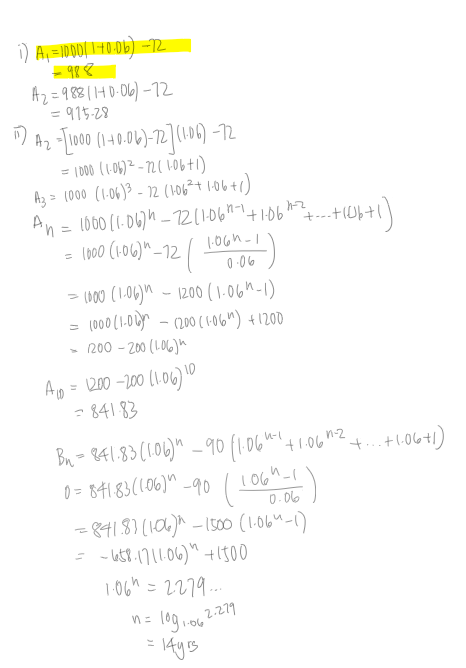 i) A₁ = 1000(1+0.06) - 72
= 988
A₂ = 988(1+0.06) - 72
= 975.28
ii) A₂ = [1000(1+0.06)-72](1.06) - 72
= 1000(1.06)² - 72(1.06+1)
A₃ = 1000(1.06)³ - 72(1.06²+1.06+1)
Aₙ = 1000(1.06)ⁿ - 72(1.06ⁿ⁻¹+1.06ⁿ⁻²+...+1.06+1)
= 1000(1.06)ⁿ - 72((1.06ⁿ-1)/0.06)
= 1000(1.06)ⁿ - 1200(1.06ⁿ-1)
= 1000(1.06)ⁿ - 1200(1.06ⁿ) + 1200
= 1200 - 200(1.06)ⁿ
A₁₀ = 1200 - 200(1.06)¹⁰
= 841.83
Bₙ = 841.83(1.06)ⁿ - 90(1.06ⁿ⁻¹+1.06ⁿ⁻²+...+1.06+1)
0 = 841.83(1.06)ⁿ - 90((1.06ⁿ-1)/0.06)
= 841.83(1.06)ⁿ - 1500(1.06ⁿ-1)
= -658.17(1.06)ⁿ + 1500
1.06ⁿ = 2.279...
n = log₁.₀₆ 2.279
= 14yrs